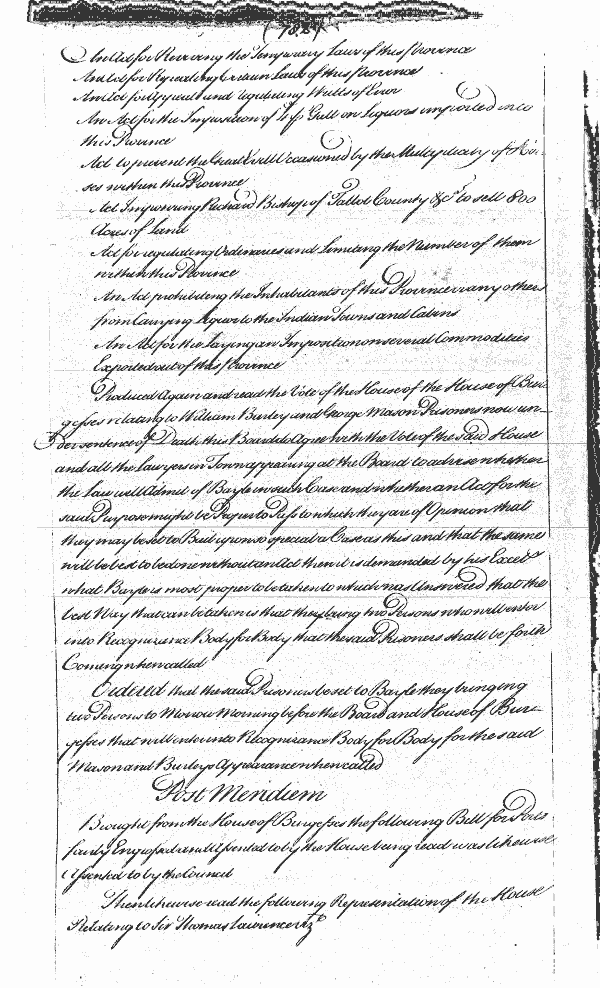 An Act for Reviving the Temporary Laws of this Province
An Act for Repealing Certain Laws of this Province
An Act for Appeals and regulating Writts of Error
An Act for the Imposition of 4d p Gall on Liquors imported into
this Province
Act to prevent the Great Evill Occasioned by the Multiplicity of Hor-
ses within this Province
Act Impowering Richard Bishop of Talbot County &ca to sell 800
Acres of Land
Act for regulating Ordinaries and Limiting the Number of them
within this Province
An Act prohibiting the Inhabitants of this Province or any others
from Carrying Liquor to the Indian Towns and Cabins
An Act for the Laying an Imposition on several Commodities
Exported out of this Province
Produced Again and read the Vote of the House of the House of Bur-
gesses relating to William Burley and George Mason Prisoners now un-
der sentence of Death this Board do Agree with the Vote of the said House
and all the Lawyers in Town appearing at the Board to advise whether
the Law will Admit of Bayle in such Case and whether an Act for the
said Purpose might be Proper to Pass to which they are of Opinion that
they may be set to Bail upon so special a Case as this and that the same
will be best to be done without an Act then it is demanded by his Excelcy
what Bayle is most proper to be taken to which was Answered that the
best Way that can be taken is that they bring two Persons who will enter
into Recognizance Body for Body that the said Prisoners shall be forth
Coming when called
Ordered that the said Prisoners be set to Bayle they bringing
two Persons to Morrow Morning before the Board and House of Bur-
gesses that will enter into Recognizance Body for Body for the said
Mason and Burleys Appearance when called
Post Meridiem
Brought from the House of Burgesses the following Bill for Ports
fairly Engrossed and Assented to by the House being read was likewise
Assented to by the Council
Then likewise read the following Representation of the House
Relating to Sir Thomas Lawrence Vizt